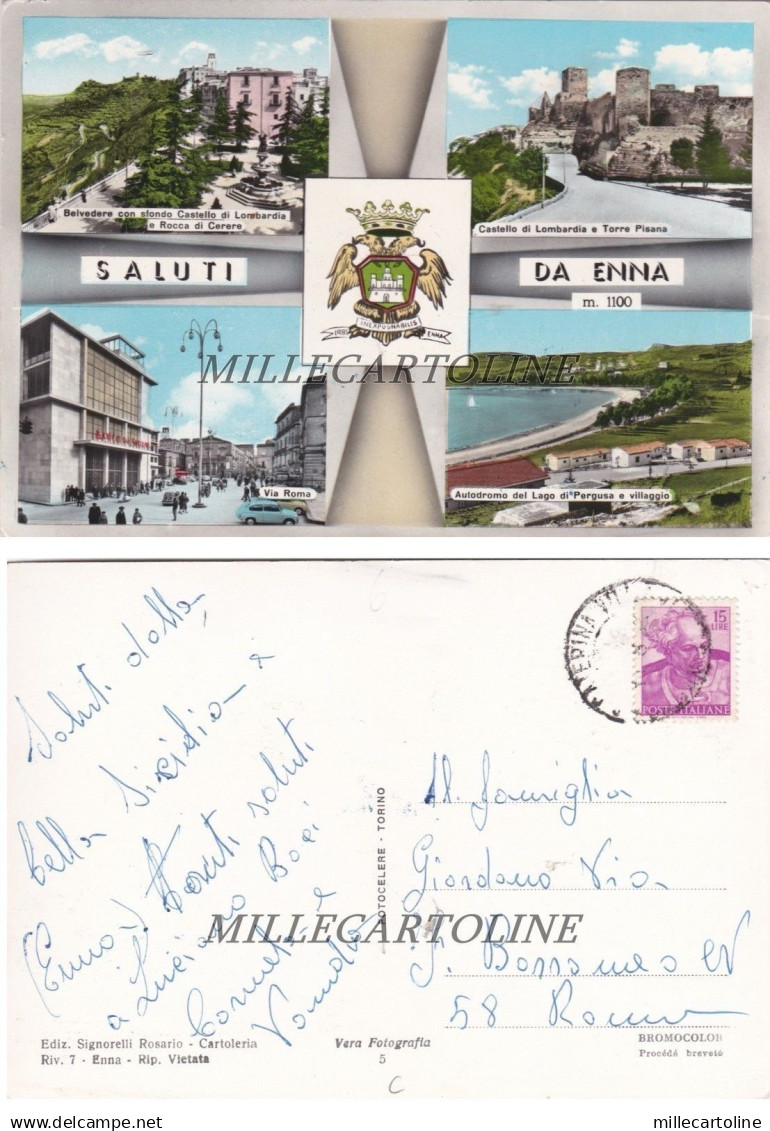 Belvedere con sfondo Castello di Lombardia
e Rocca di Cerere
Castello di Lombardia e Torre Pisana
SALUTI
DA ENNA
m. 1100
INEXPUGNABILIS
ENNA
MILLECARTOLINE
Via Roma
Autodromo del Lago di Pergusa e villaggio
Saluti dalla
bella Sicilia
(Enna) Tanti saluti
a Luciano Baci
15
LIRE
POSTE ITALIANE
Famiglia
Giordano Via
58 Roma
FOTOCELERE - TORINO
MILLECARTOLINE
Ediz. Signorelli Rosario - Cartoleria
Riv. 7 - Enna - Rip. Vietata
Vera Fotografia
5
BROMOCOLOR
Procédé breveté
C
delcampe.net
millecartoline